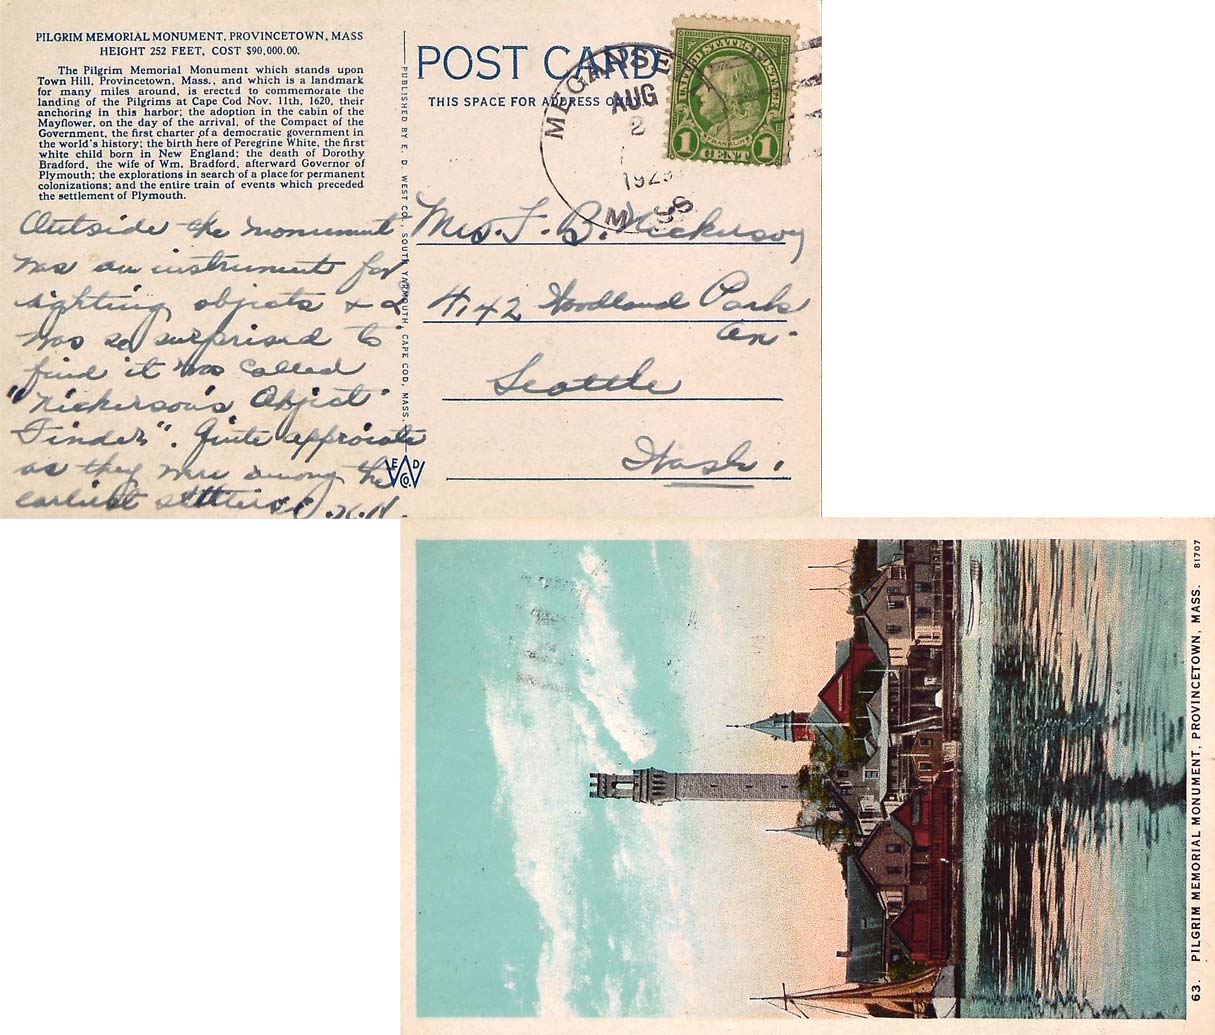 PILGRIM MEMORIAL MONUMENT, PROVINCETOWN, MASS
HEIGHT 252 FEET, COST $90,000.00.
The Pilgrim Memorial Monument which stands upon
Town Hill, Provincetown, Mass., and which is a landmark
for many miles around, is erected to commemorate the
landing of the Pilgrims at Cape Cod Nov. 11th, 1620, their
anchoring in this harbor; the adoption in the cabin of the
Mayflower, on the day of the arrival, of the Compact of the
Government, the first charter of a democratic government in
the world's history; the birth here of Peregrine White, the first
white child born in New England; the death of Dorothy
Bradford, the wife of Wm. Bradford, afterward Governor of
Plymouth; the explorations in search of a place for permanent
colonizations; and the entire train of events which preceded
the settlement of Plymouth.
Outside the monument
was an instrument for
sighting objects & I
was so surprised to
find it was called
"Nickerson's Object
Finder". Quite approiate
as they were among the
earliest settlers. H.N.
PUBLISHED BY E. D. WEST CO., SOUTH YARMOUTH, CAPE COD, MASS.
E D
W
CO.
POST CARD
THIS SPACE FOR ADDRESS ONLY
AUG
2
MASS
UNITED STATES POSTAGE
FRANKLIN
1 CENT 1
Mrs. F. B. Nickerson
4142 Woodland Park
Av.
Seattle
Wash.
63. PILGRIM MEMORIAL MONUMENT, PROVINCETOWN, MASS. 81707